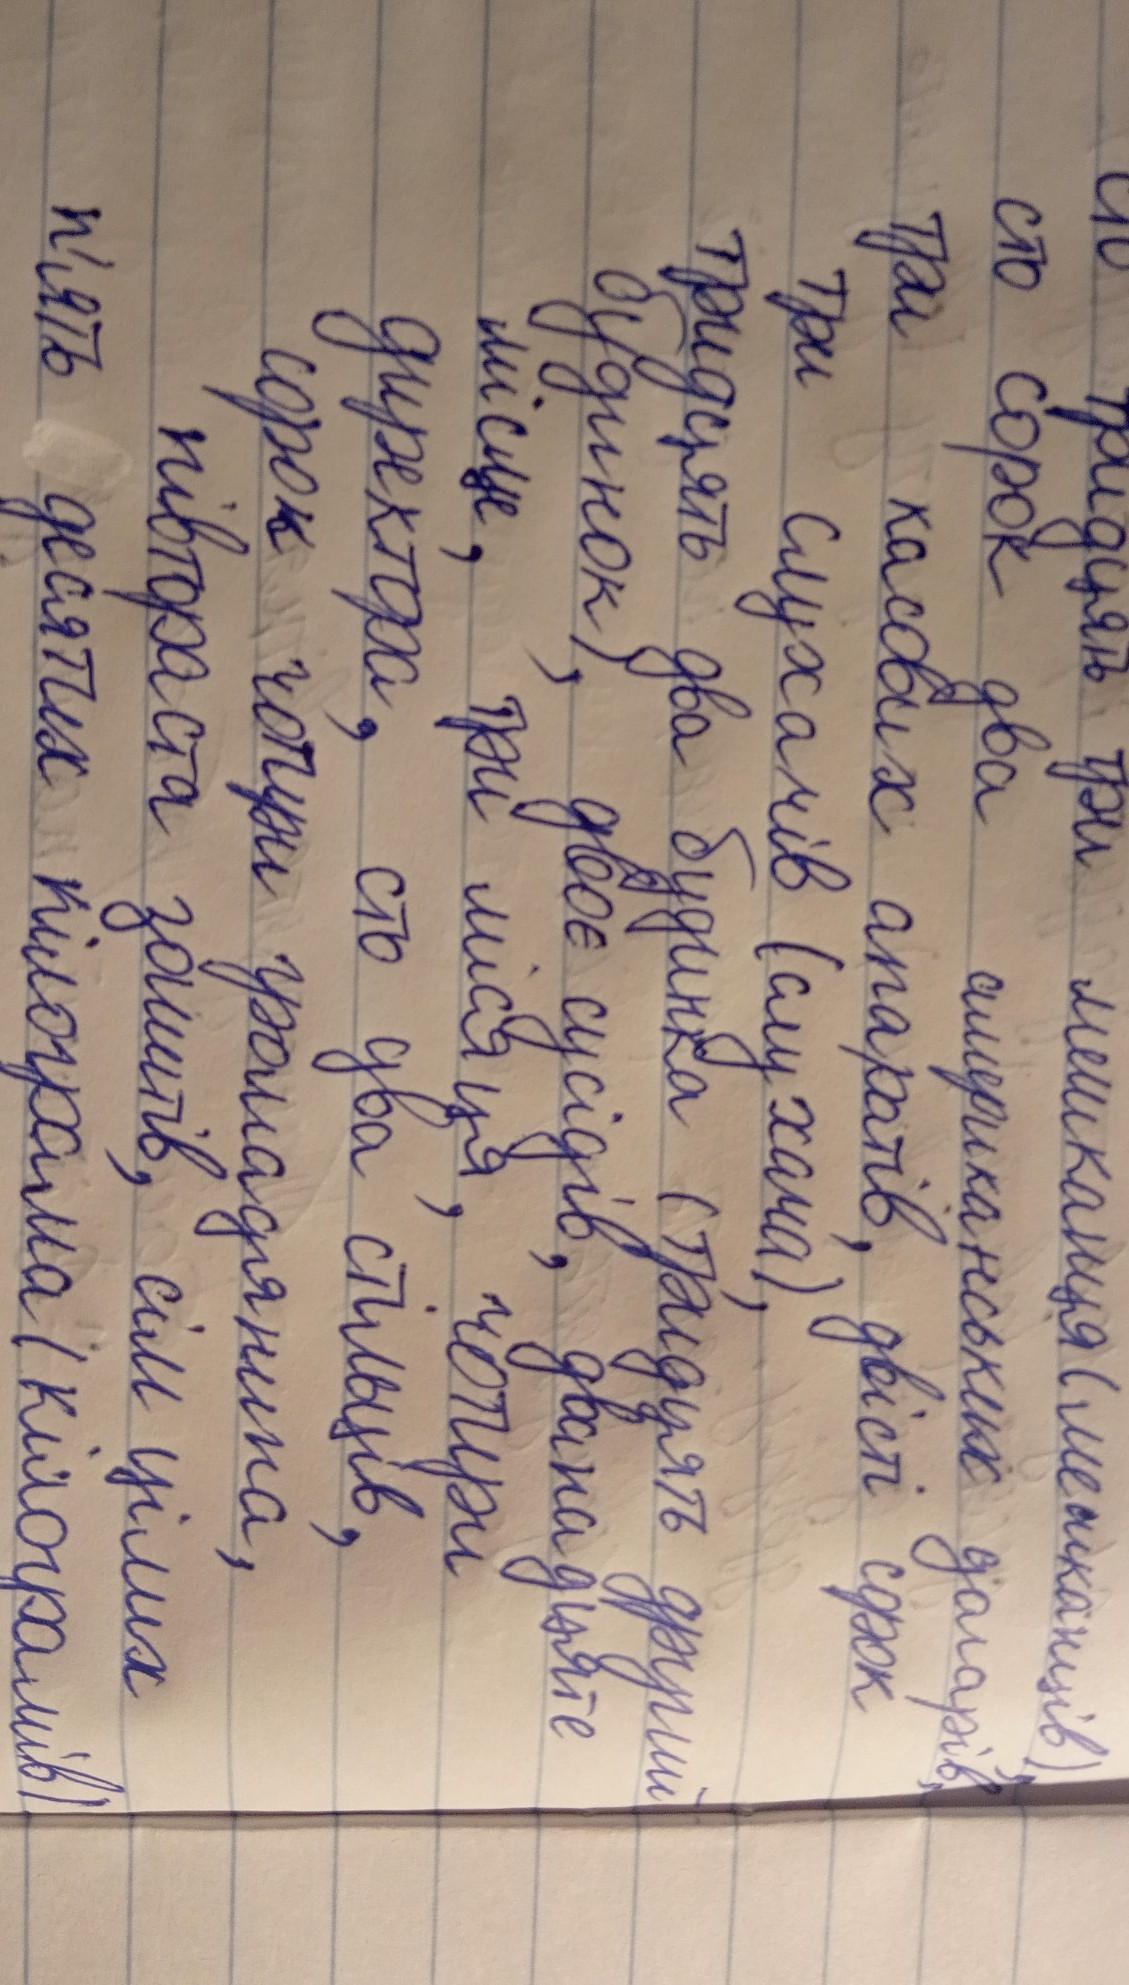 сто тридцять три мешканця (мешканців),
сто сорок два американських доларів,
три касових апаратів, двісті сорок
три слухачів (слухача),
тридцять два будинка (тридцять другий
будинок), двоє сусідів, дванадцяте
місце, три місяця, чотири
директора, сто два стільців,
сорок чотири громадянина,
півтораста зошитів, сім цілих
п'ять десятих кілограма (кілограмів)